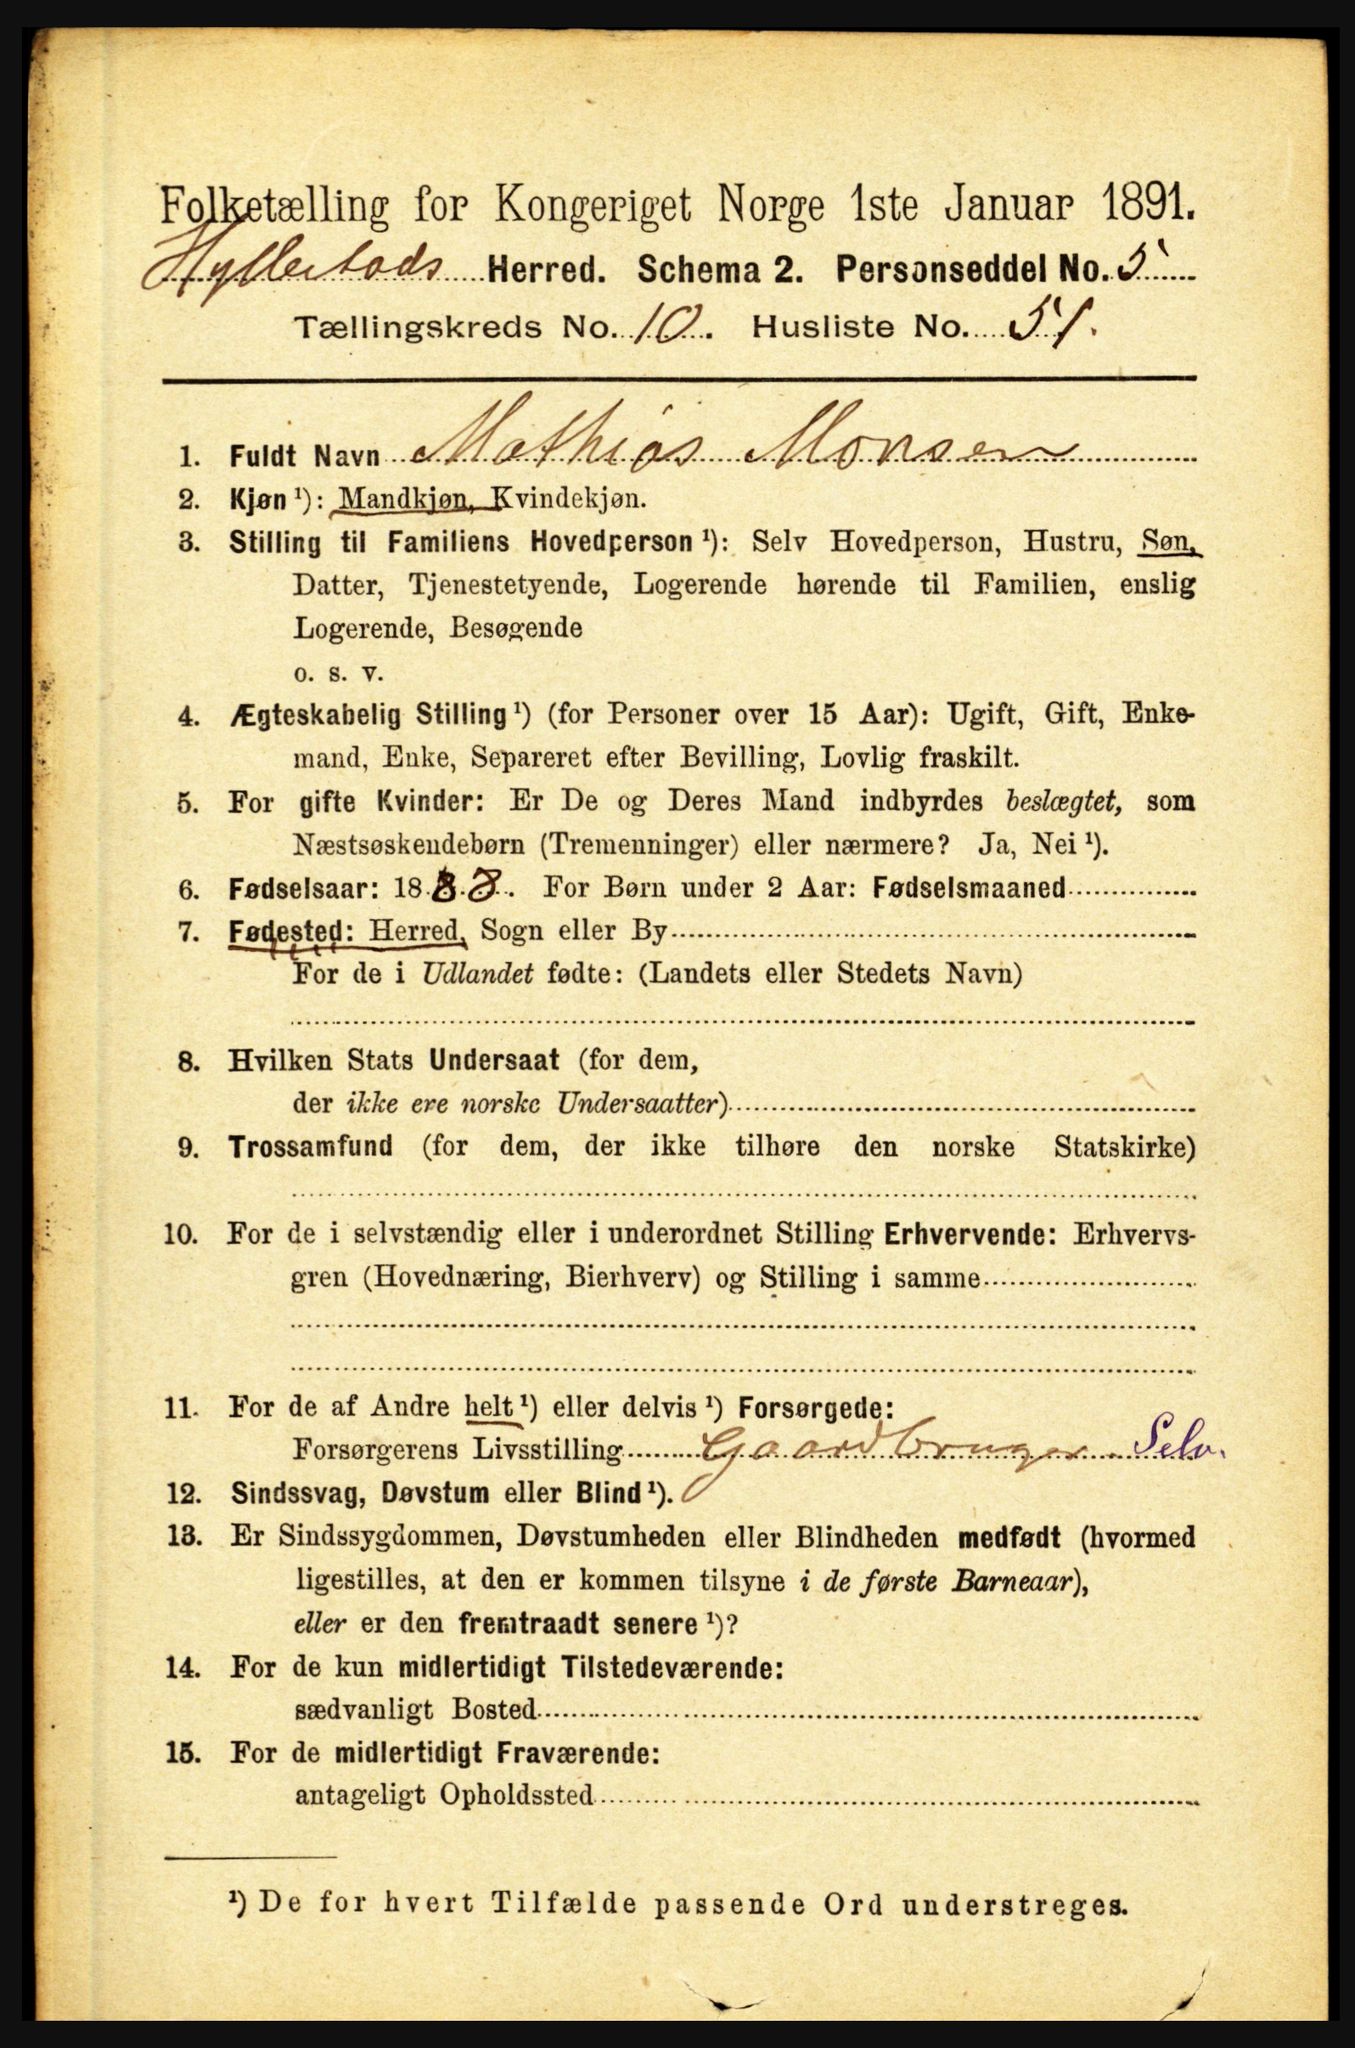 Folketælling for Kongeriget Norge 1ste Januar 1891.
Hyllestads Herred. Schema 2. Personseddel No. 5
Tællingskreds No. 10. Husliste No. 51.
1. Fuldt Navn Mathias Monsen
2. Kjøn¹): Mandkjøn, Kvindekjøn.
3. Stilling til Familiens Hovedperson¹): Selv Hovedperson, Hustru, Søn,
Datter, Tjenestetyende, Logerende hørende til Familien, enslig
Logerende, Besøgende
o. s. v.
4. Ægteskabelig Stilling¹) (for Personer over 15 Aar): Ugift, Gift, Enke-
mand, Enke, Separeret efter Bevilling, Lovlig fraskilt.
5. For gifte Kvinder: Er De og Deres Mand indbyrdes beslægtet, som
Næstsøskendebørn (Tremenninger) eller nærmere? Ja, Nei¹).
6. Fødselsaar: 1883. For Børn under 2 Aar: Fødselsmaaned
7. Fødested: Herred, Sogn eller By
For de i Udlandet fødte: (Landets eller Stedets Navn)
8. Hvilken Stats Undersaat (for dem,
der ikke ere norske Undersaatter)
9. Trossamfund (for dem, der ikke tilhøre den norske Statskirke)
10. For de i selvstændig eller i underordnet Stilling Erhvervende: Erhvervs-
gren (Hovednæring, Bierhverv) og Stilling i samme
11. For de af Andre helt¹) eller delvis¹) Forsørgede:
Forsørgerens Livsstilling Gaardbruger Selv.
12. Sindssvag, Døvstum eller Blind¹).
13. Er Sindssygdommen, Døvstumheden eller Blindheden medfødt (hvormed
ligestilles, at den er kommen tilsyne i de første Barneaar),
eller er den fremtraadt senere¹)?
14. For de kun midlertidigt Tilstedeværende:
sædvanligt Bosted
15. For de midlertidigt Fraværende:
antageligt Opholdssted
¹) De for hvert Tilfælde passende Ord understreges.